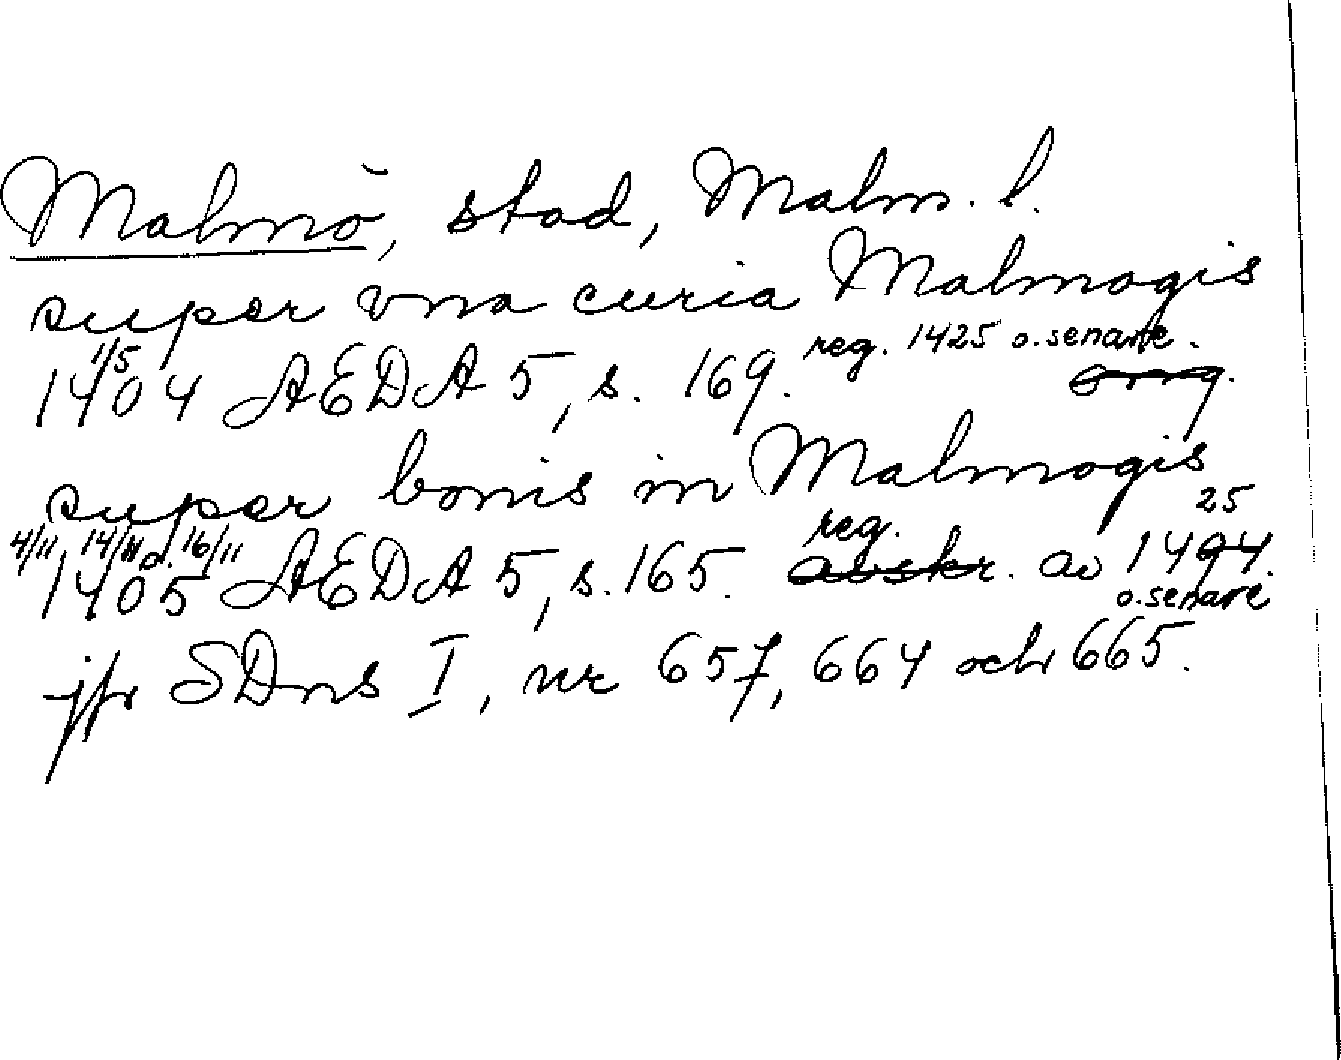 Malmö, stad, Malm. l.
super vna curia Malmogis
1/5 1404 AEDA 5, s. 169. reg. 1425 o. senare. orig.
super bonis in Malmogis
4/11, 14/11 o. 16/11 1405 AEDA 5, s. 165. reg. avskr. av 1494. 25 o. senare
jfr SDns I, nr 657, 664 och 665.